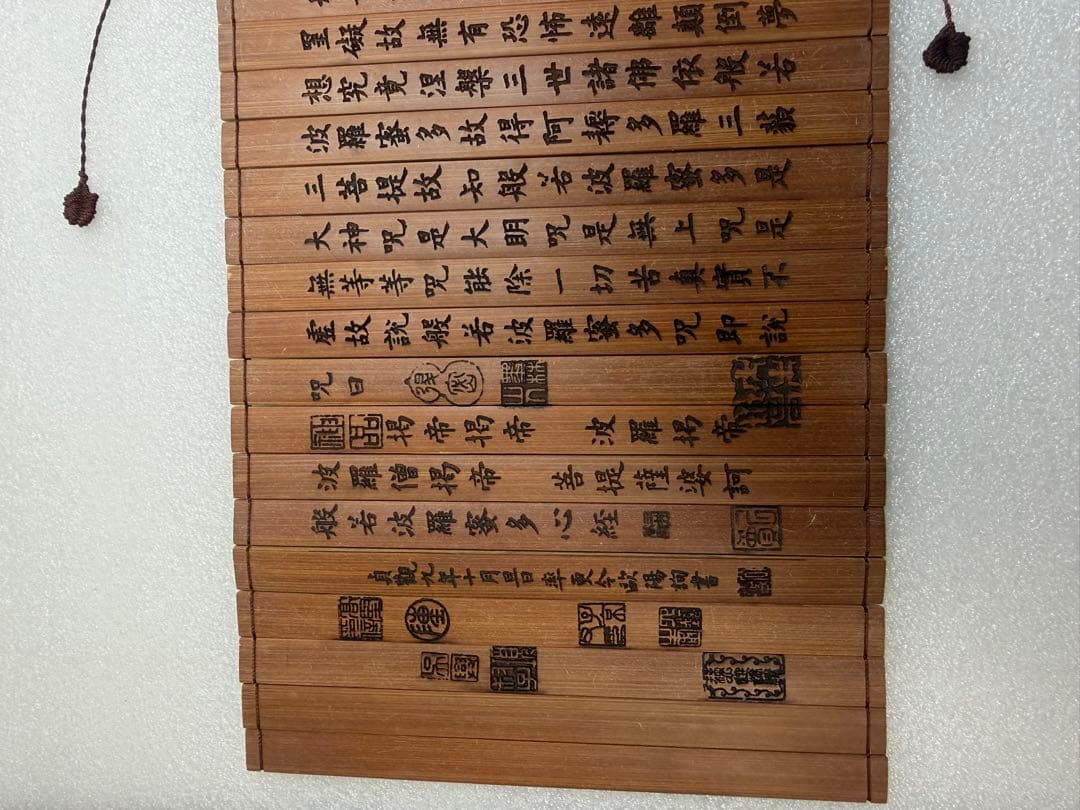 罣礙故無有恐怖遠離顛倒夢
想究竟涅槃三世諸佛依般若
波羅蜜多故得阿耨多羅三藐
三菩提故知般若波羅蜜多是
大神呪是大明呪是無上呪是
無等等呪能除一切苦真實不
虛故說般若波羅蜜多呪即說
呪曰
揭帝揭帝 波羅揭帝
波羅僧揭帝 菩提薩婆訶
般若波羅蜜多心經
貞觀九年十月旦日率更令歐陽詢書